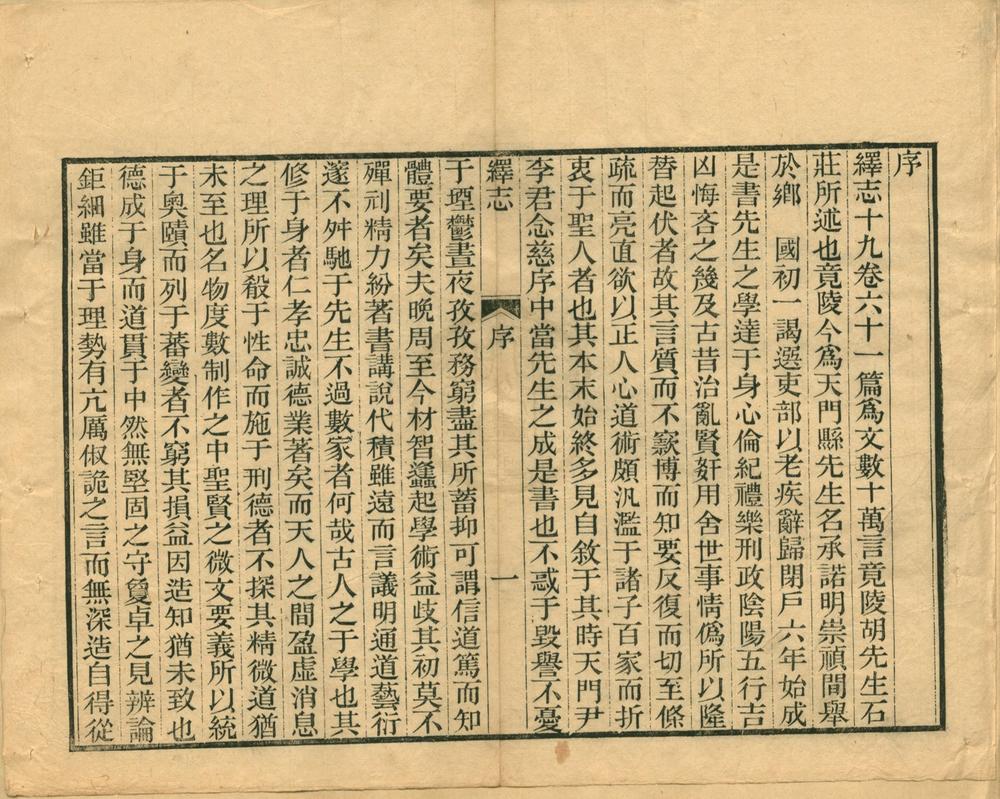 序
繹志十九卷六十一篇爲文數十萬言竟陵胡先生石
莊所述也竟陵今爲天門縣先生名承諾明崇禎間舉
於鄉　國初一謁選吏部以老疾辭歸閉戶六年始成
是書先生之學達于身心倫紀禮樂刑政陰陽五行吉
凶悔吝之幾及古昔治亂賢奸用舍世事情僞所以隆
替起伏者故其言質而不窾博而知要反復而切至條
疏而亮直欲以正人心道術頗汎濫于諸子百家而折
衷于聖人者也其本末始終多見自敘于其時天門尹
李君念慈序中當先生之成是書也不惑于毀譽不憂
繹志
序
一
于堙鬱晝夜孜孜務窮盡其所蓄抑可謂信道篤而知
體要者矣夫晚周至今材智蠭起學術益歧其初莫不
殫刓精力紛著書講說代積雖遠而言議明通道藝衍
邃不舛馳于先生不過數家者何哉古人之于學也其
修于身者仁孝忠誠德業著矣而天人之間盈虛消息
之理所以殽于性命而施于刑德者不探其精微道猶
未至也名物度數制作之中聖賢之微文要義所以統
于奧賾而列于蕃變者不窮其損益因造知猶未致也
德成于身而道貫于中然無堅固之守夐卓之見辨論
鉅細雖當于理勢有亢厲俶詭之言而無深造自得從